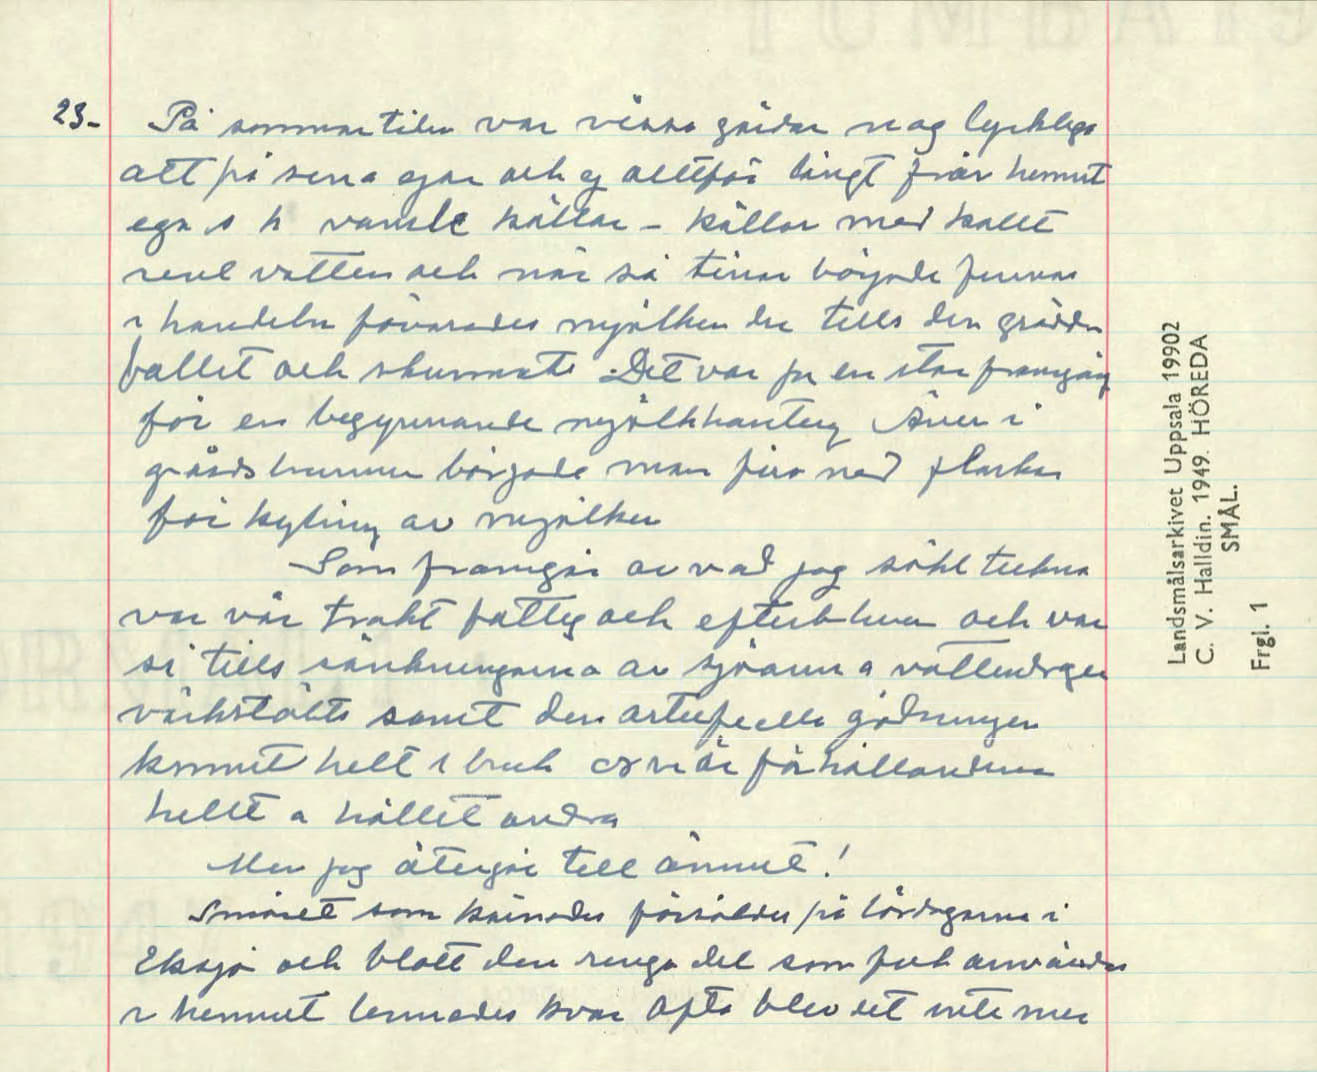 23-
På sommartiden var vissa gårdar nog lyckliga
att på sina egor och ej alltför långt från hemmet
ega s k källor - källor med kallt
rent vatten och när så tinor började finnas
i handeln förvarades mjölken der tills den grädda
fallit och skummats. Det var ju en stor framgång
för en begynnande mjölkhantering Även i
gårdsbrunnen började man fira ned flaskor
för kylning av mjölken
Som framgår av vad jag sökt teckna
var vår trakt fattig och efterbliven och var
så tills sänkningarna av sjöarna o vattendragen
värkstälts samt den artificiella gödningen
kommit helt i bruk och nu är förhållandena
hellt o hållet andra
Men jag återgår till ämnet!
Smöret som kärnades försåldes på lördagarna i
Eksjö och blott den ringa del som fick användas
i hemmet lemnades kvar Ofta blev det inte mer
Landsmålsarkivet Uppsala 19902
C. V. Halldin. 1949. HÖREDA
SMÅL.
Frgl. 1